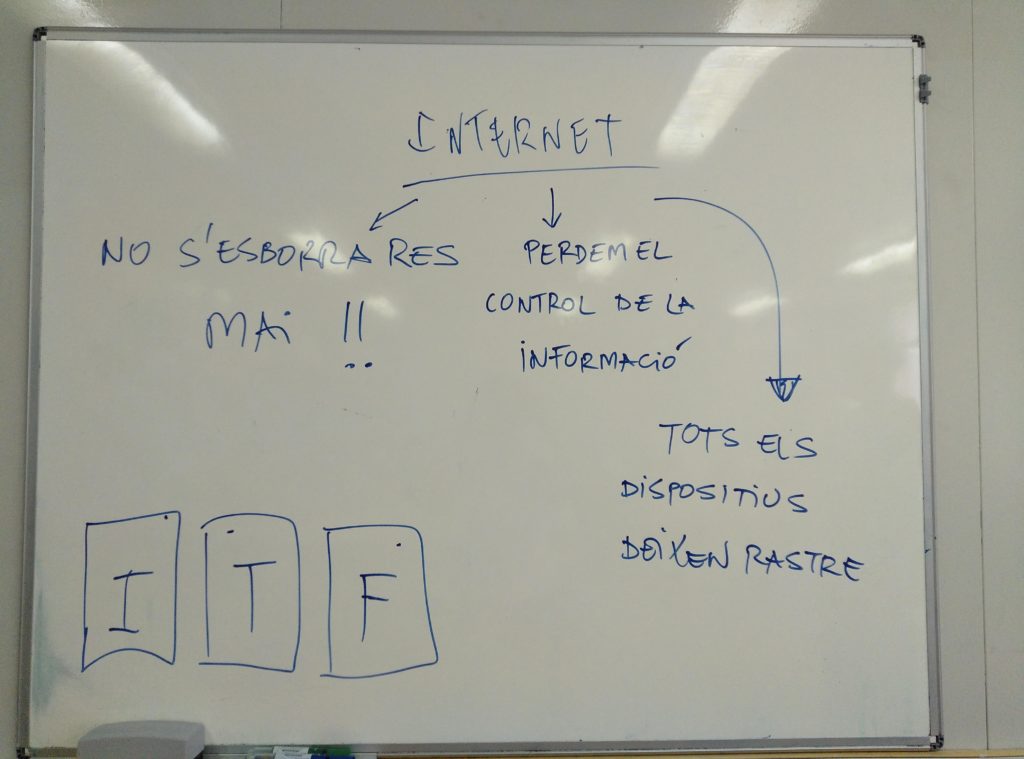 INTERNET
NO S'ESBORRA RES
MAi !!
PERDEM EL
CONTROL DE LA
iNFORMACIÓ
TOTS ELS
DiSPOSiTiUS
DEiXEN RASTRE
I T F